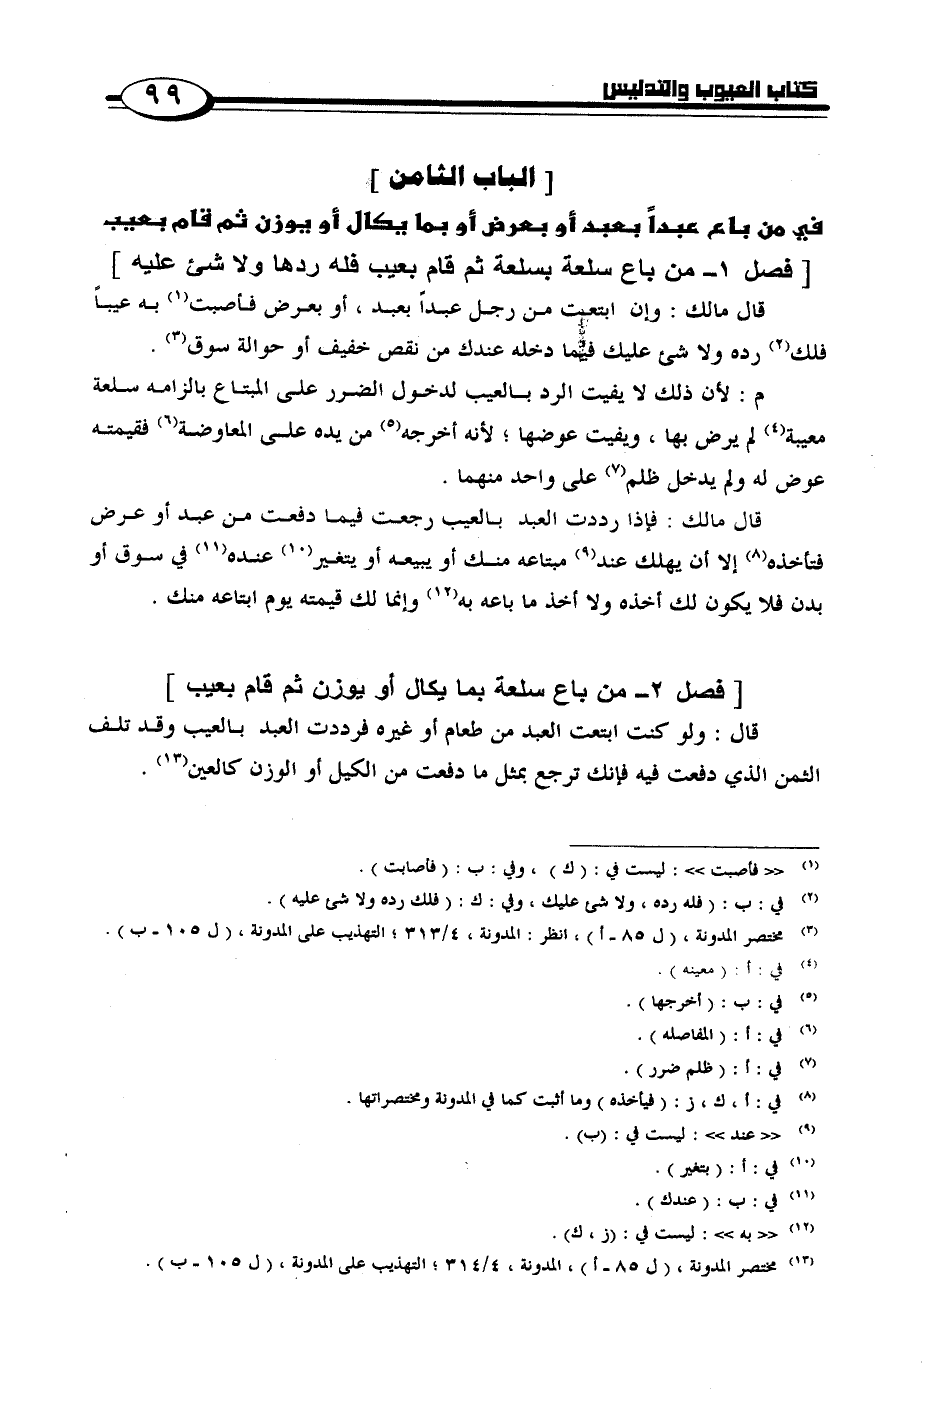 كتاب العيوب والتدليس
٩٩
[ الباب الثامن ]
في من باع عبداً بعبد أو بعرض أو بما يكال أو يوزن ثم قام بعيب
[ فصل ١ـ من باع سلعة بسلعة ثم قام بعيب فله ردها ولا شئ عليه ]
قال مالك : وإن ابتعت من رجل عبداً بعبد ، أو بعرض فأصبت(١) به عيباً
فلك(٢) رده ولا شئ عليك فيما دخله عندك من نقص خفيف أو حوالة سوق(٣) .
م : لأن ذلك لا يفيت الرد بالعيب لدخول الضرر على المبتاع بالزامه سلعة
معيبة(٤) لم يرض بها ، ويفيت عوضها ؛ لأنه أخرجه(٥) من يده على المعاوضة(٦) فقيمته
عوض له ولم يدخل ظلم(٧) على واحد منهما .
قال مالك : فإذا رددت العبد بالعيب رجعت فيما دفعت من عبد أو عرض
فتأخذه(٨) إلا أن يهلك عند(٩) مبتاعه منك أو يبيعه أو يتغير(١٠) عنده(١١) في سوق أو
بدن فلا يكون لك أخذه ولا أخذ ما باعه به(١٢) وإنما لك قيمته يوم ابتاعه منك .
[ فصل ٢ـ من باع سلعة بما يكال أو يوزن ثم قام بعيب ]
قال : ولو كنت ابتعت العبد من طعام أو غيره فرددت العبد بالعيب وقد تلف
الثمن الذي دفعت فيه فإنك ترجع بمثل ما دفعت من الكيل أو الوزن كالعين(١٣) .
(١) << فأصبت >> : ليست في : ( ك ) ، وفي : ب : ( فأصابت ) .
(٢) في : ب : ( فله رده ، ولا شئ عليك ، وفي : ك : ( فلك رده ولا شئ عليه ) .
(٣) مختصر المدونة ، ( ل ٨٥ ـ أ ) ، انظر : المدونة ، ٣١٣/٤ ؛ التهذيب على المدونة ، ( ل ١٠٥ ـ ب ) .
(٤) في : أ : ( معينه ) .
(٥) في : ب : ( أخرجها ) .
(٦) في : أ : ( المفاصله ) .
(٧) في : أ : ( ظلم ضرر ) .
(٨) في : أ ، ك ، ز : ( فيأخذه ) وما أثبت كما في المدونة ومختصراتها .
(٩) << عند >> : ليست في : (ب) .
(١٠) في : أ : ( بتغير ) .
(١١) في : ب : ( عندك ) .
(١٢) << به >> : ليست في : (ز ، ك) .
(١٣) مختصر المدونة ، ( ل ٨٥ ـ أ ) ، المدونة ، ٣١٤/٤ ؛ التهذيب على المدونة ، ( ل ١٠٥ ـ ب ) .